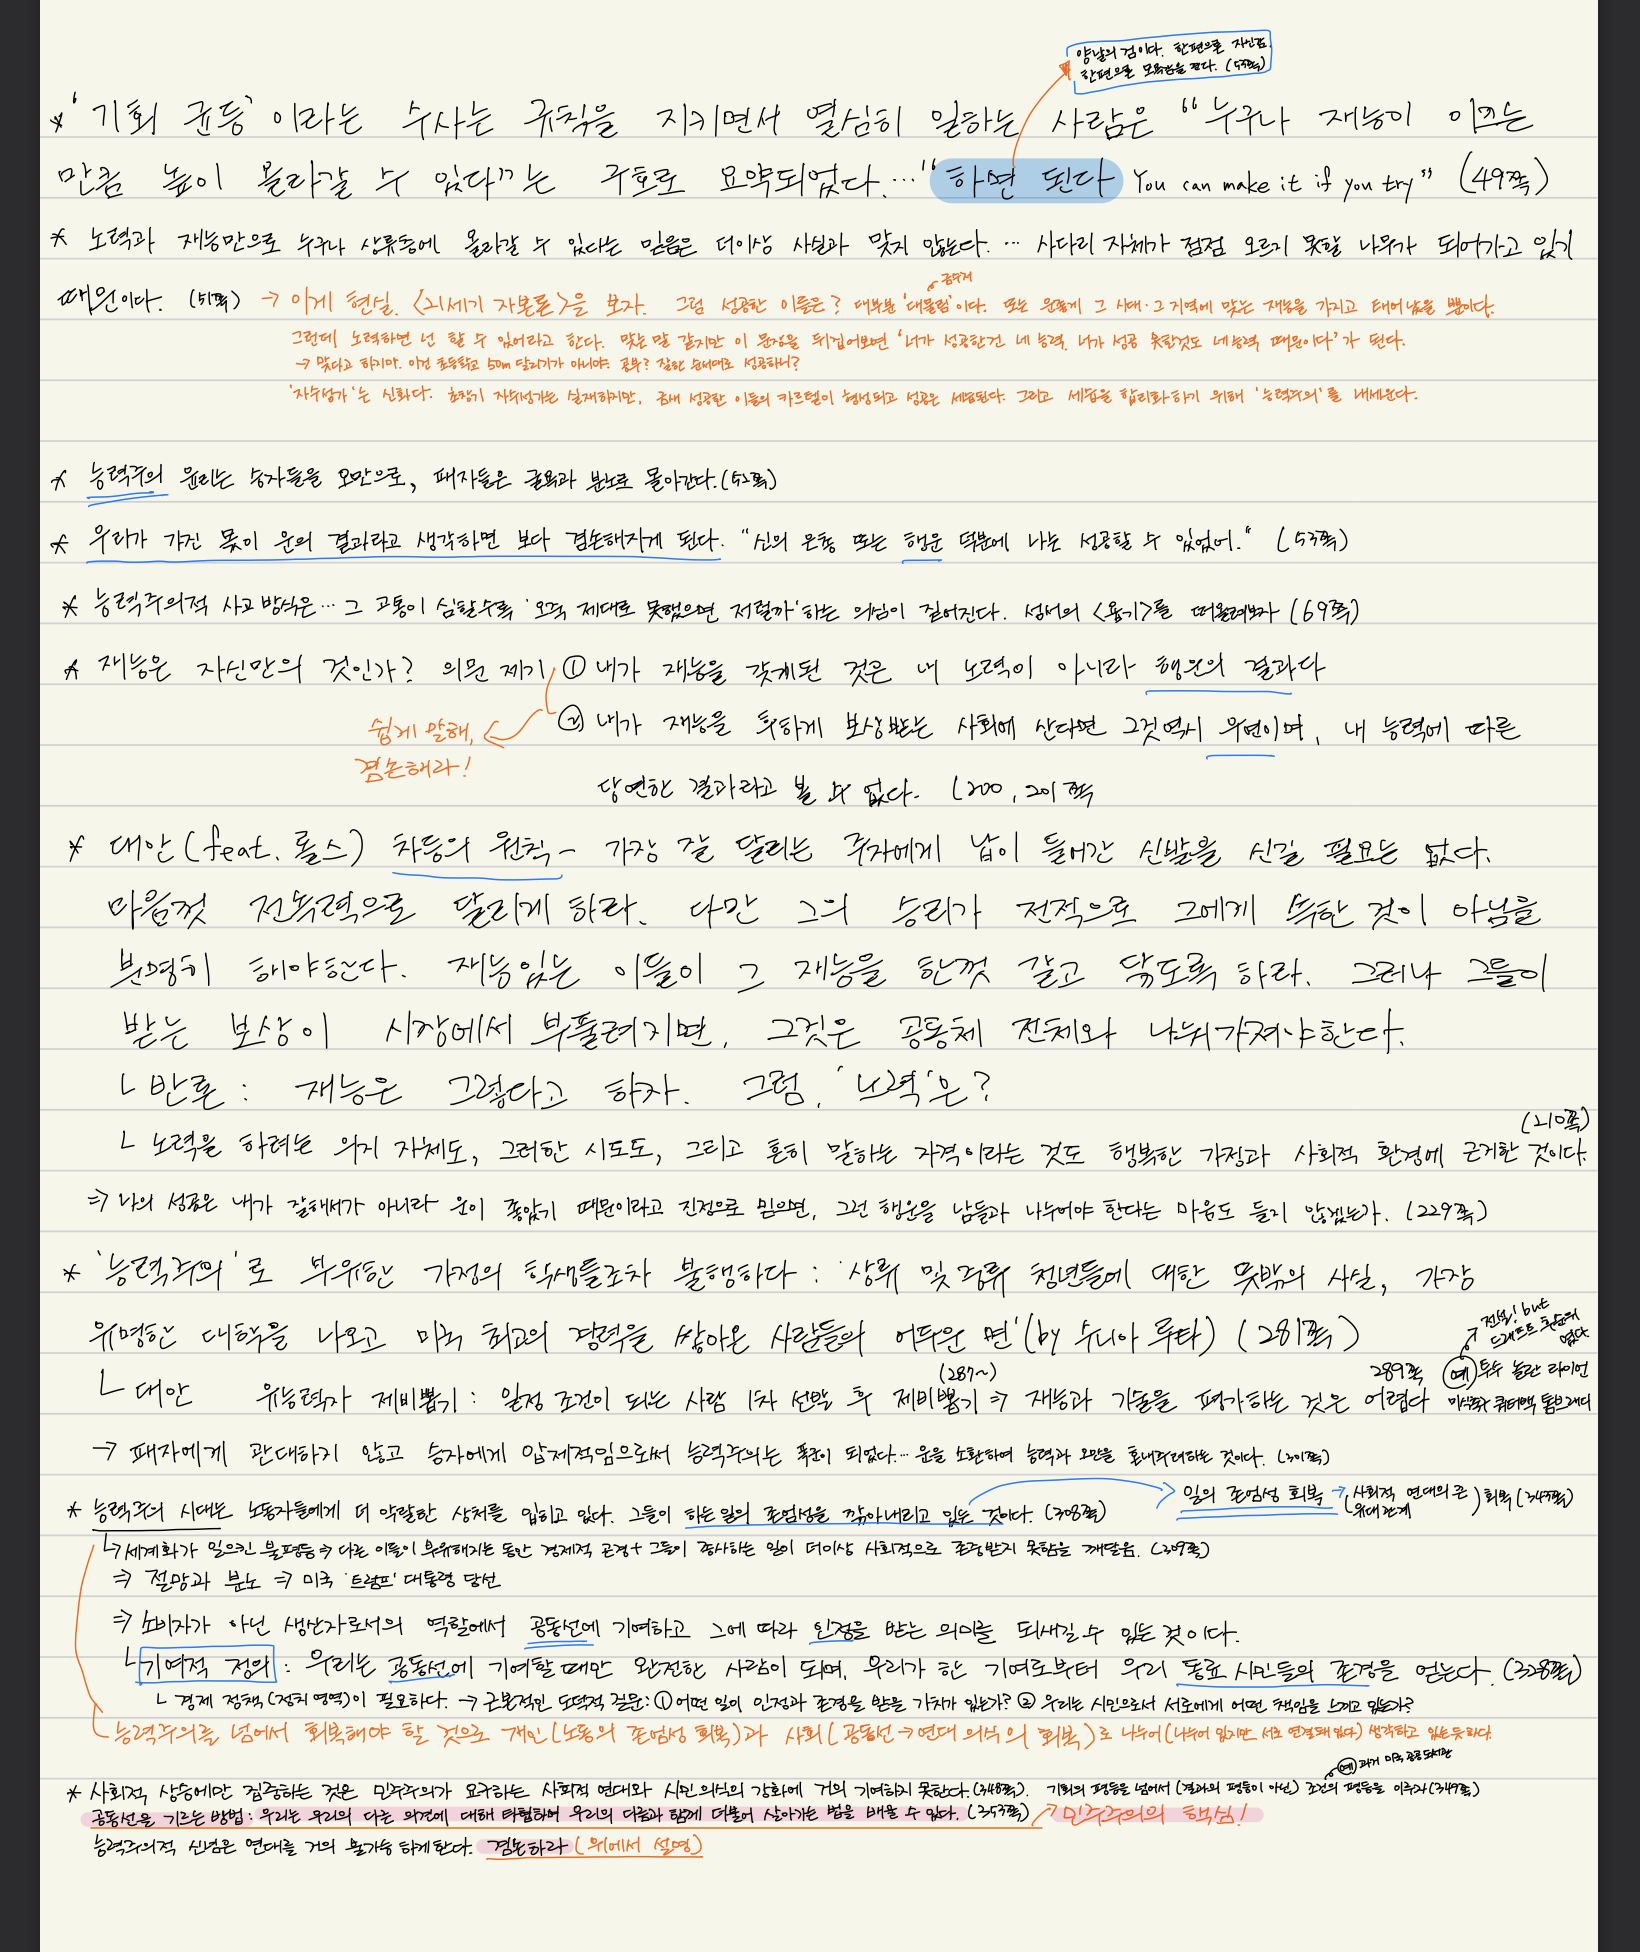 양날의 검이다. 한편으로 자신감,
한편으로 모욕감을 준다. (53쪽)
* '기회 균등' 이라는 수사는 규칙을 지키면서 열심히 일하는 사람은 "누구나 재능이 이끄는
만큼 높이 올라갈 수 있다"는 구호로 요약되었다.…"하면 된다 You can make it if you try" (49쪽)
* 노력과 재능만으로 누구나 상류층에 올라갈 수 있다는 믿음은 더이상 사실과 맞지 않는다. … 사다리 자체가 점점 오르지 못할 나무가 되어가고 있기
금수저
때문이다. (51쪽) → 이게 현실. <21세기 자본론>을 보자. 그럼 성공한 이들은? 대부분 '대물림'이다. 또는 운좋게 그 시대·그 지역에 맞는 재능을 가지고 태어났을 뿐이다.
그런데 노력하면 넌 할 수 있어라고 한다. 맞는 말 같지만 이 문장을 뒤집어보면 '너가 성공한건 네 능력, 너가 성공 못한것도 네 능력 때문이다'가 된다.
→ 맞다고 하지마. 이건 초등학교 50m 달리기가 아니야. 공부? 잘한 순서대로 성공하니?
'자수성가'는 신화다. 초창기 자수성가는 실재하지만, 금새 성공한 이들의 카르텔이 형성되고 성공은 세습된다. 그리고 세습을 합리화하기 위해 '능력주의'를 내세운다.
* 능력주의 윤리는 승자들을 오만으로, 패자들은 굴욕과 분노로 몰아간다.(52쪽)
* 우리가 가진 몫이 운의 결과라고 생각하면 보다 겸손해지게 된다. "신의 은총 또는 행운 덕분에 나는 성공할 수 있었어." (53쪽)
* 능력주의적 사고 방식은… 그 고통이 심할수록 '오죽 제대로 못했으면 저럴까'하는 의심이 짙어진다. 성서의 <욥기>를 떠올려보자 (69쪽)
* 재능은 자신만의 것인가? 의문 제기 ① 내가 재능을 갖게된 것은 내 노력이 아니라 행운의 결과다
쉽게 말해, ② 내가 재능을 후하게 보상받는 사회에 산다면 그것 역시 우연이며, 내 능력에 따른
겸손해라!
당연한 결과라고 볼 수 없다. (200, 201쪽
* 대안(feat. 롤스) 차등의 원칙 - 가장 잘 달리는 주자에게 납이 들어간 신발을 신길 필요는 없다.
마음껏 전속력으로 달리게 하라. 다만 그의 승리가 전적으로 그에게 속한 것이 아님을
분명히 해야한다. 재능있는 이들이 그 재능을 한껏 갈고 닦도록 하라. 그러나 그들이
받는 보상이 시장에서 부풀려지면, 그것은 공동체 전체와 나눠가져야한다.
ㄴ 반론 : 재능은 그렇다고 하자. 그럼, '노력'은?
(210쪽)
ㄴ 노력을 하려는 의지 자체도, 그러한 시도도, 그리고 흔히 말하는 자격이라는 것도 행복한 가정과 사회적 환경에 근거한 것이다.
⇒ 나의 성공은 내가 잘해서가 아니라 운이 좋았기 때문이라고 진정으로 믿으면, 그런 행운을 남들과 나누어야 한다는 마음도 들지 않겠는가. (229쪽)
* '능력주의'로 부유한 가정의 학생들조차 불행하다 : '상류 및 중류 청년들에 대한 뜻밖의 사실, 가장
유명한 대학을 나오고 미국 최고의 경력을 쌓아온 사람들의 어두운 면'(by 수니아 루타) (281쪽)
전설! but
드래프트 후순위
였다
(287~)
289쪽 예 투수 놀란 라이언
ㄴ 대안 유능력자 제비뽑기 : 일정 조건이 되는 사람 1차 선발 후 제비뽑기 ⇒ 재능과 기술을 평가하는 것은 어렵다 미식축구 쿼터백 톰브래디
→ 패자에게 관대하지 않고 승자에게 압제적임으로써 능력주의는 폭군이 되었다… 운을 소환하여 능력과 오만을 혼내주려하는 것이다. (301쪽)
* 능력주의 시대는 노동자들에게 더 악랄한 상처를 입히고 있다. 그들이 하는 일의 존엄성을 깎아내리고 있는 것이다. (308쪽)
일의 존엄성 회복 → (사회적 연대의 끈
유대관계) 회복 (345쪽)
ㄴ→ 세계화가 일으킨 불평등 → 다른 이들이 부유해지는 동안 경제적 곤경 + 그들이 종사하는 일이 더이상 사회적으로 존경받지 못함을 깨달음. (309쪽)
⇒ 절망과 분노 ⇒ 미국 '트럼프' 대통령 당선
⇒ 소비자가 아닌 생산자로서의 역할에서 공동선에 기여하고 그에 따라 인정을 받는 의미를 되새길 수 있는 것이다.
ㄴ 기여적 정의 : 우리는 공동선에 기여할 때만 완전한 사람이 되며, 우리가 한 기여로부터 우리 동료 시민들의 존경을 얻는다. (328쪽)
ㄴ 경제 정책(정치 영역)이 필요하다. → 근본적인 도덕적 질문 : ① 어떤 일이 인정과 존경을 받을 가치가 있는가? ② 우리는 시민으로서 서로에게 어떤 책임을 느끼고 있는가?
ㄴ 능력주의를 넘어서 회복해야 할 것으로 개인(노동의 존엄성 회복)과 사회(공동선 → 연대 의식의 회복)로 나누어(나누어 있지만 서로 연결돼 있다) 생각하고 있는듯하다.
예 과거 미국 공공도서관
* 사회적 상승에만 집중하는 것은 민주주의가 요구하는 사회적 연대와 시민 의식의 강화에 거의 기여하지 못한다. (348쪽). 기회의 평등을 넘어서 (결과의 평등이 아닌) 조건의 평등을 이루자 (349쪽)
공동선을 기르는 방법 : 우리는 우리의 다른 의견에 대해 타협하며 우리의 다름과 함께 더불어 살아가는 법을 배울 수 있다. (353쪽) → 민주주의의 핵심!
능력주의적 신념은 연대를 거의 불가능 하게 한다. 겸손하라 (위에서 설명)